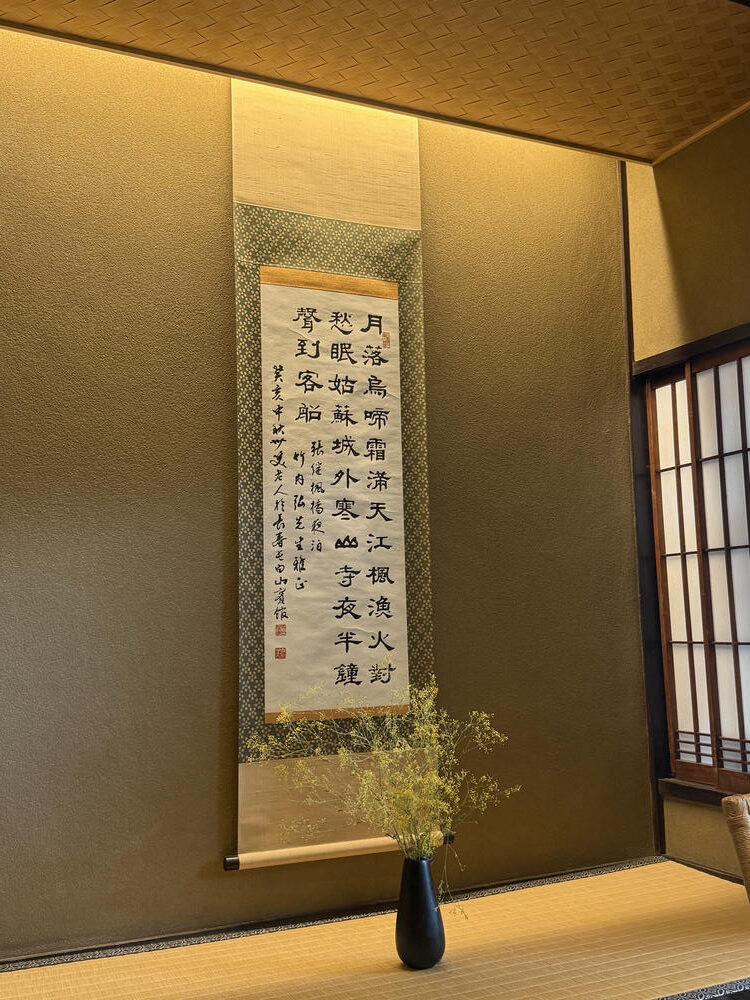 月落烏啼霜滿天江楓漁火對
愁眠姑蘇城外寒山寺夜半鐘
聲到客船
張繼楓橋夜泊
竹内弘先生雅正
癸亥中秋
老人於長春
山賓館